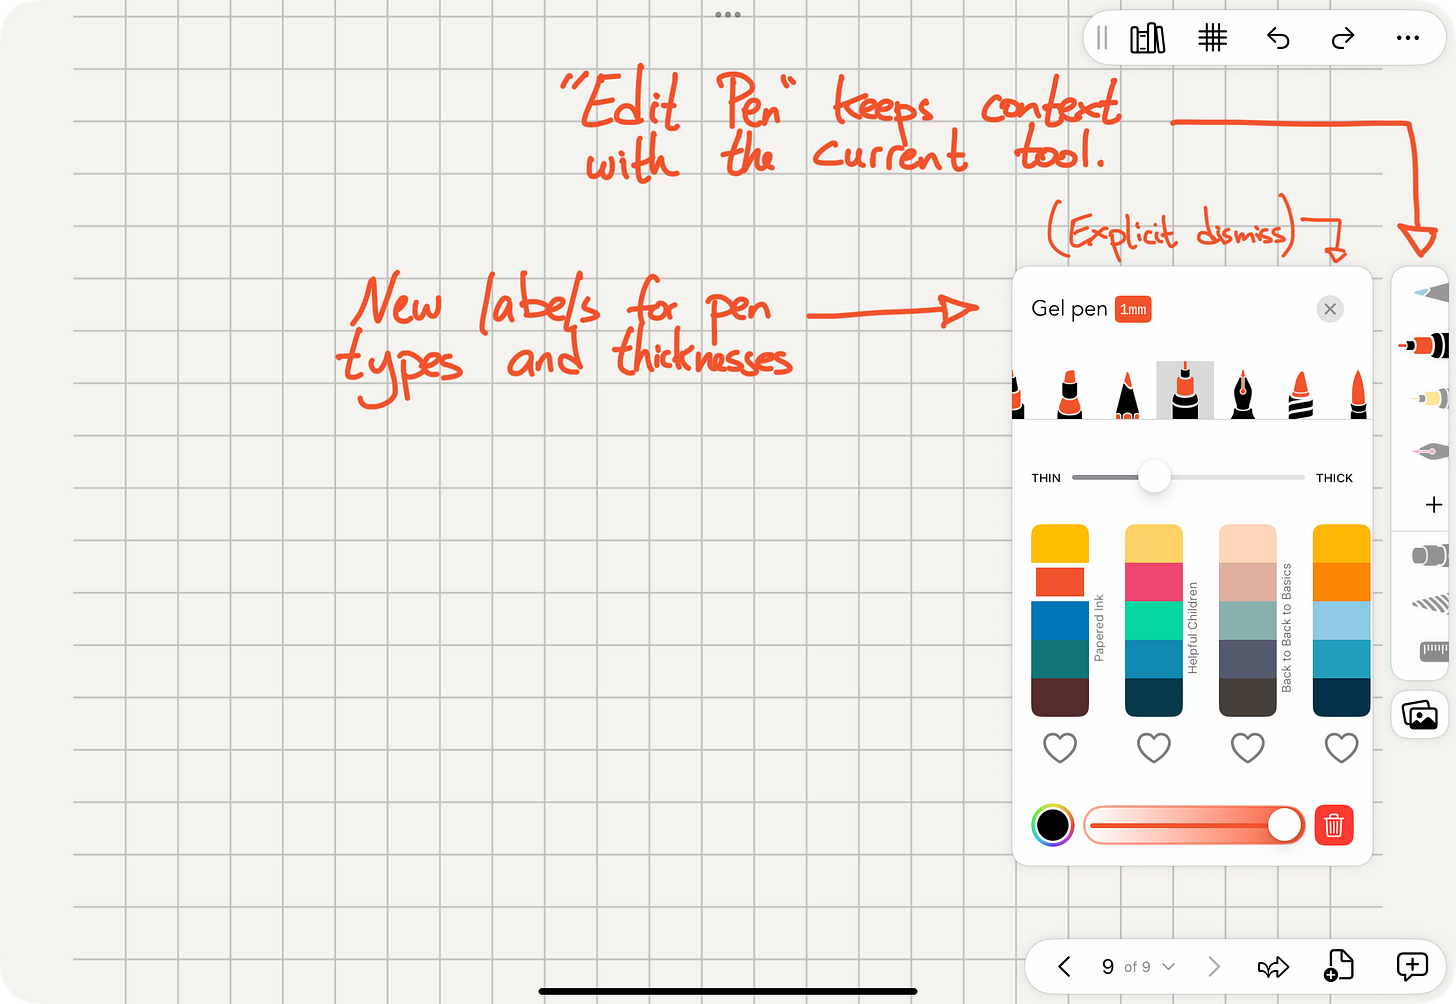 "Edit Pen" keeps context
with the current tool.
(Explicit dismiss)
New labels for pen
types and thicknesses
Gel pen 1mm
THIN THICK
Papered Ink
Helpful Children
Back to Back to Basics
9 of 9